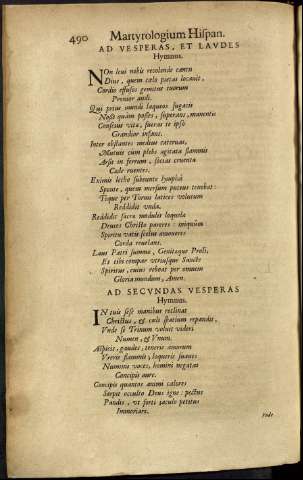 490 Martyrologium Hispan.
AD VESPERAS, ET LAVDES
Hymnus.
NOn leui nobis recolende cantu
Diue, quem cælo pietas locauit,
Cordis effusos gemitus tuorum
Pronior audi.
Qui prius mundi laqueos fugacis
Nosti quàm posses, superans, manentis
Conscius vitæ, fueras te ipso
Grandior infans.
Inter obstantes medius cateruas,
Mutuis cùm plebs agitata flammis
Arsit in ferrum, socias cruenta
Cæde
Eximis letho subeunte lympha
Sponte, quem mersum puteus tenebat:
Teque per Toruus latices volutum
Reddidit vnda.
Reddidit sacra modulis loquela
Deuces Christo parere: iniquûm
Spiritu vatis scelus amouere
Corda reuelans.
Laus Patri summo, Genitæque Proli,
Et tibi compar vtriusque Sancte
Spiritus, cuius reboat per omnem
Gloria mundum, Amen.
AD SECVNDAS VESPERAS
Hymnus.
IN tuis sese manibus reclinat
Christus, & cæli spatium expandit,
Vnde se Trinum voluit videri
Numen, & Vnum.
Aspicis, gaudes: teneris amorum
Vreris flammis, loqueris suaues
Numini voces, homini negatas
Concipis aure.
Concipis quantos animi calores
Serpit occulto Deus igne: pectus
Pandis, vt forti iaculo petitus
Immoriare.
Inde